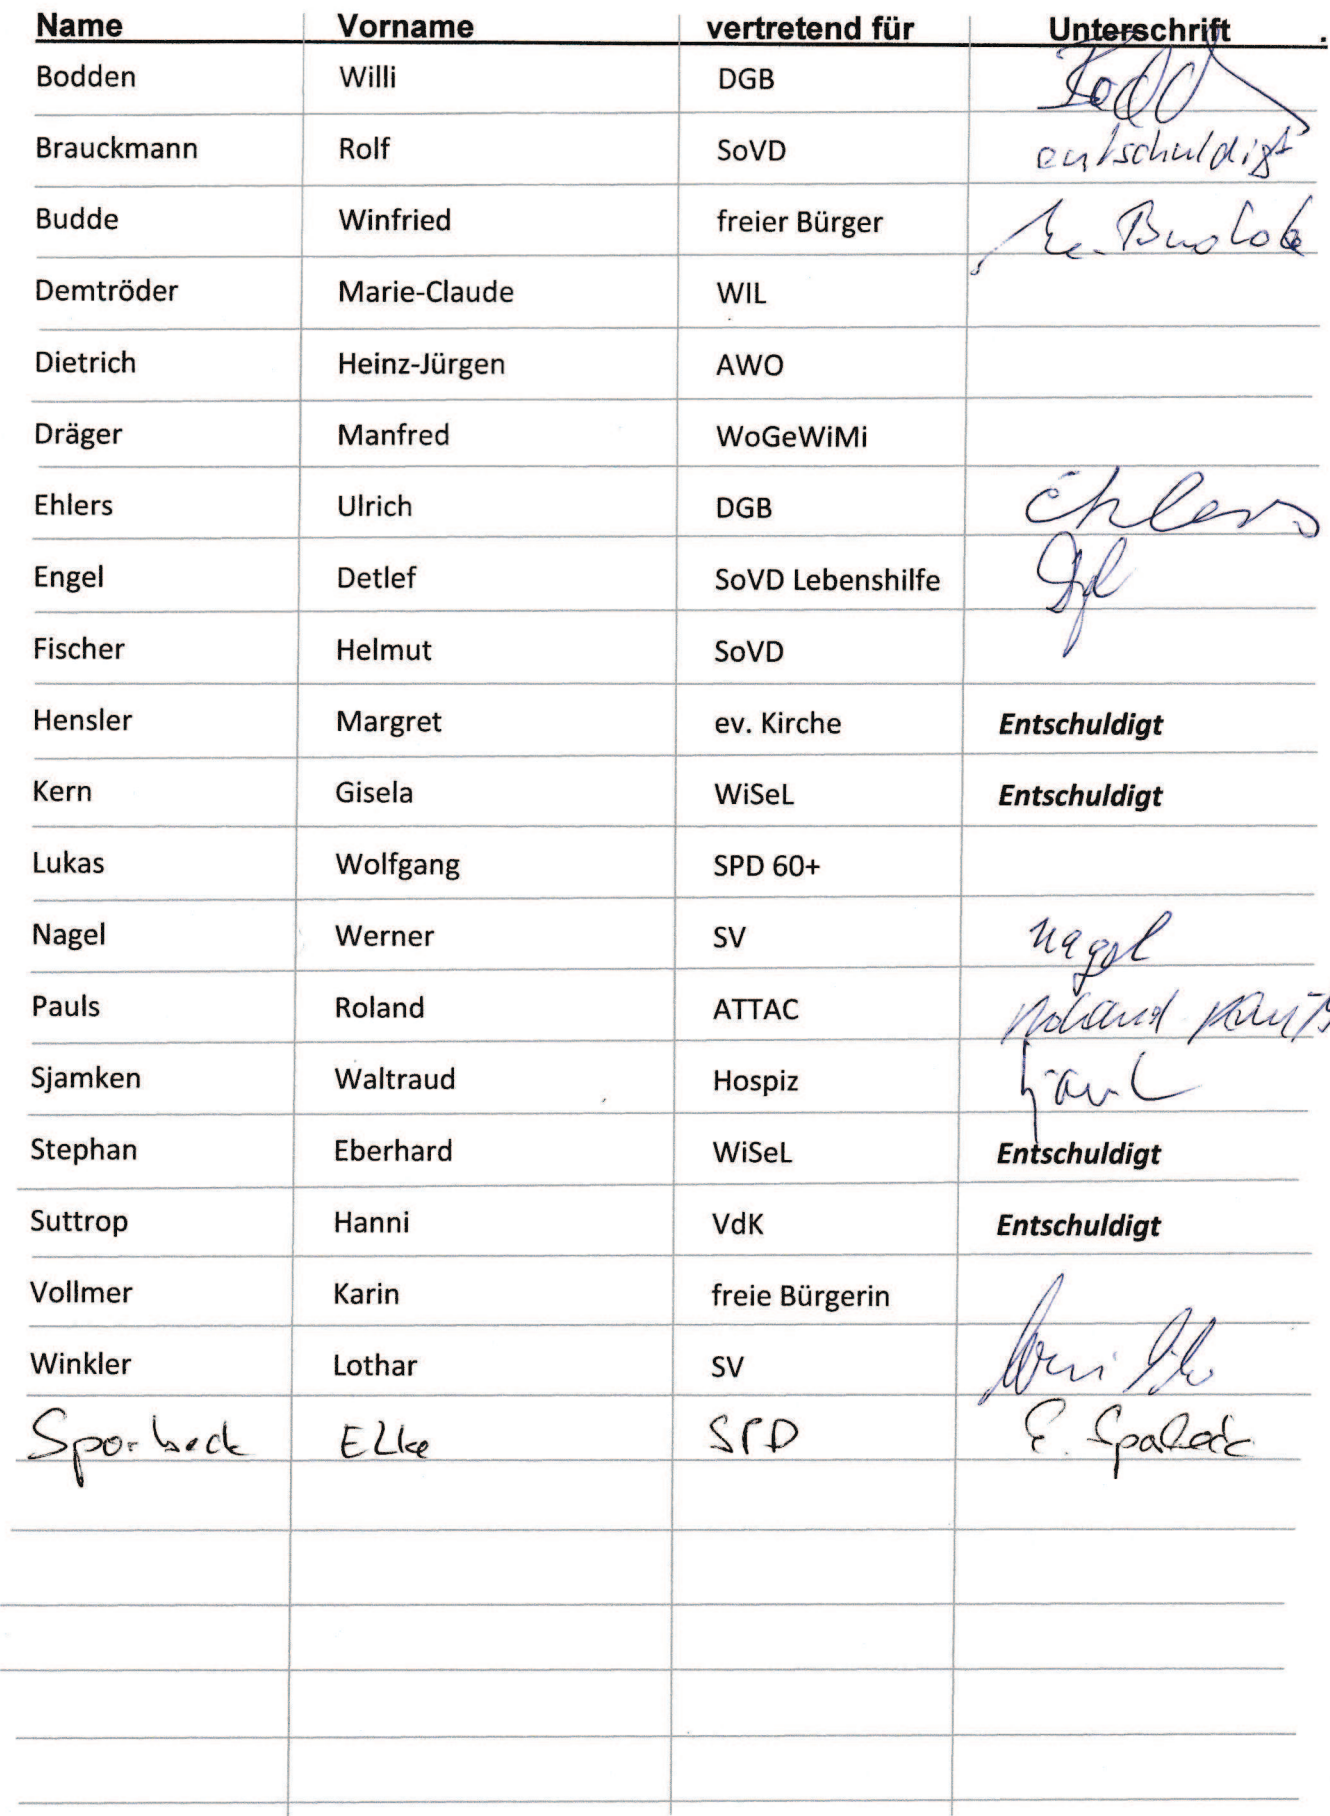 Name Vorname vertretend für Unterschrift .
Bodden Willi DGB Bodd
Brauckmann Rolf SoVD entschuldigt
Budde Winfried freier Bürger Budde
Demtröder Marie-Claude WIL
Dietrich Heinz-Jürgen AWO
Dräger Manfred WoGeWiMi
Ehlers Ulrich DGB Ehlers
Engel Detlef SoVD Lebenshilfe
Fischer Helmut SoVD
Hensler Margret ev. Kirche Entschuldigt
Kern Gisela WiSeL Entschuldigt
Lukas Wolfgang SPD 60+
Nagel Werner SV Nagel
Pauls Roland ATTAC Roland Pauls
Sjamken Waltraud Hospiz
Stephan Eberhard WiSeL Entschuldigt
Suttrop Hanni VdK Entschuldigt
Vollmer Karin freie Bürgerin
Winkler Lothar SV
Sporbeck Elke SPD E. Sporbeck